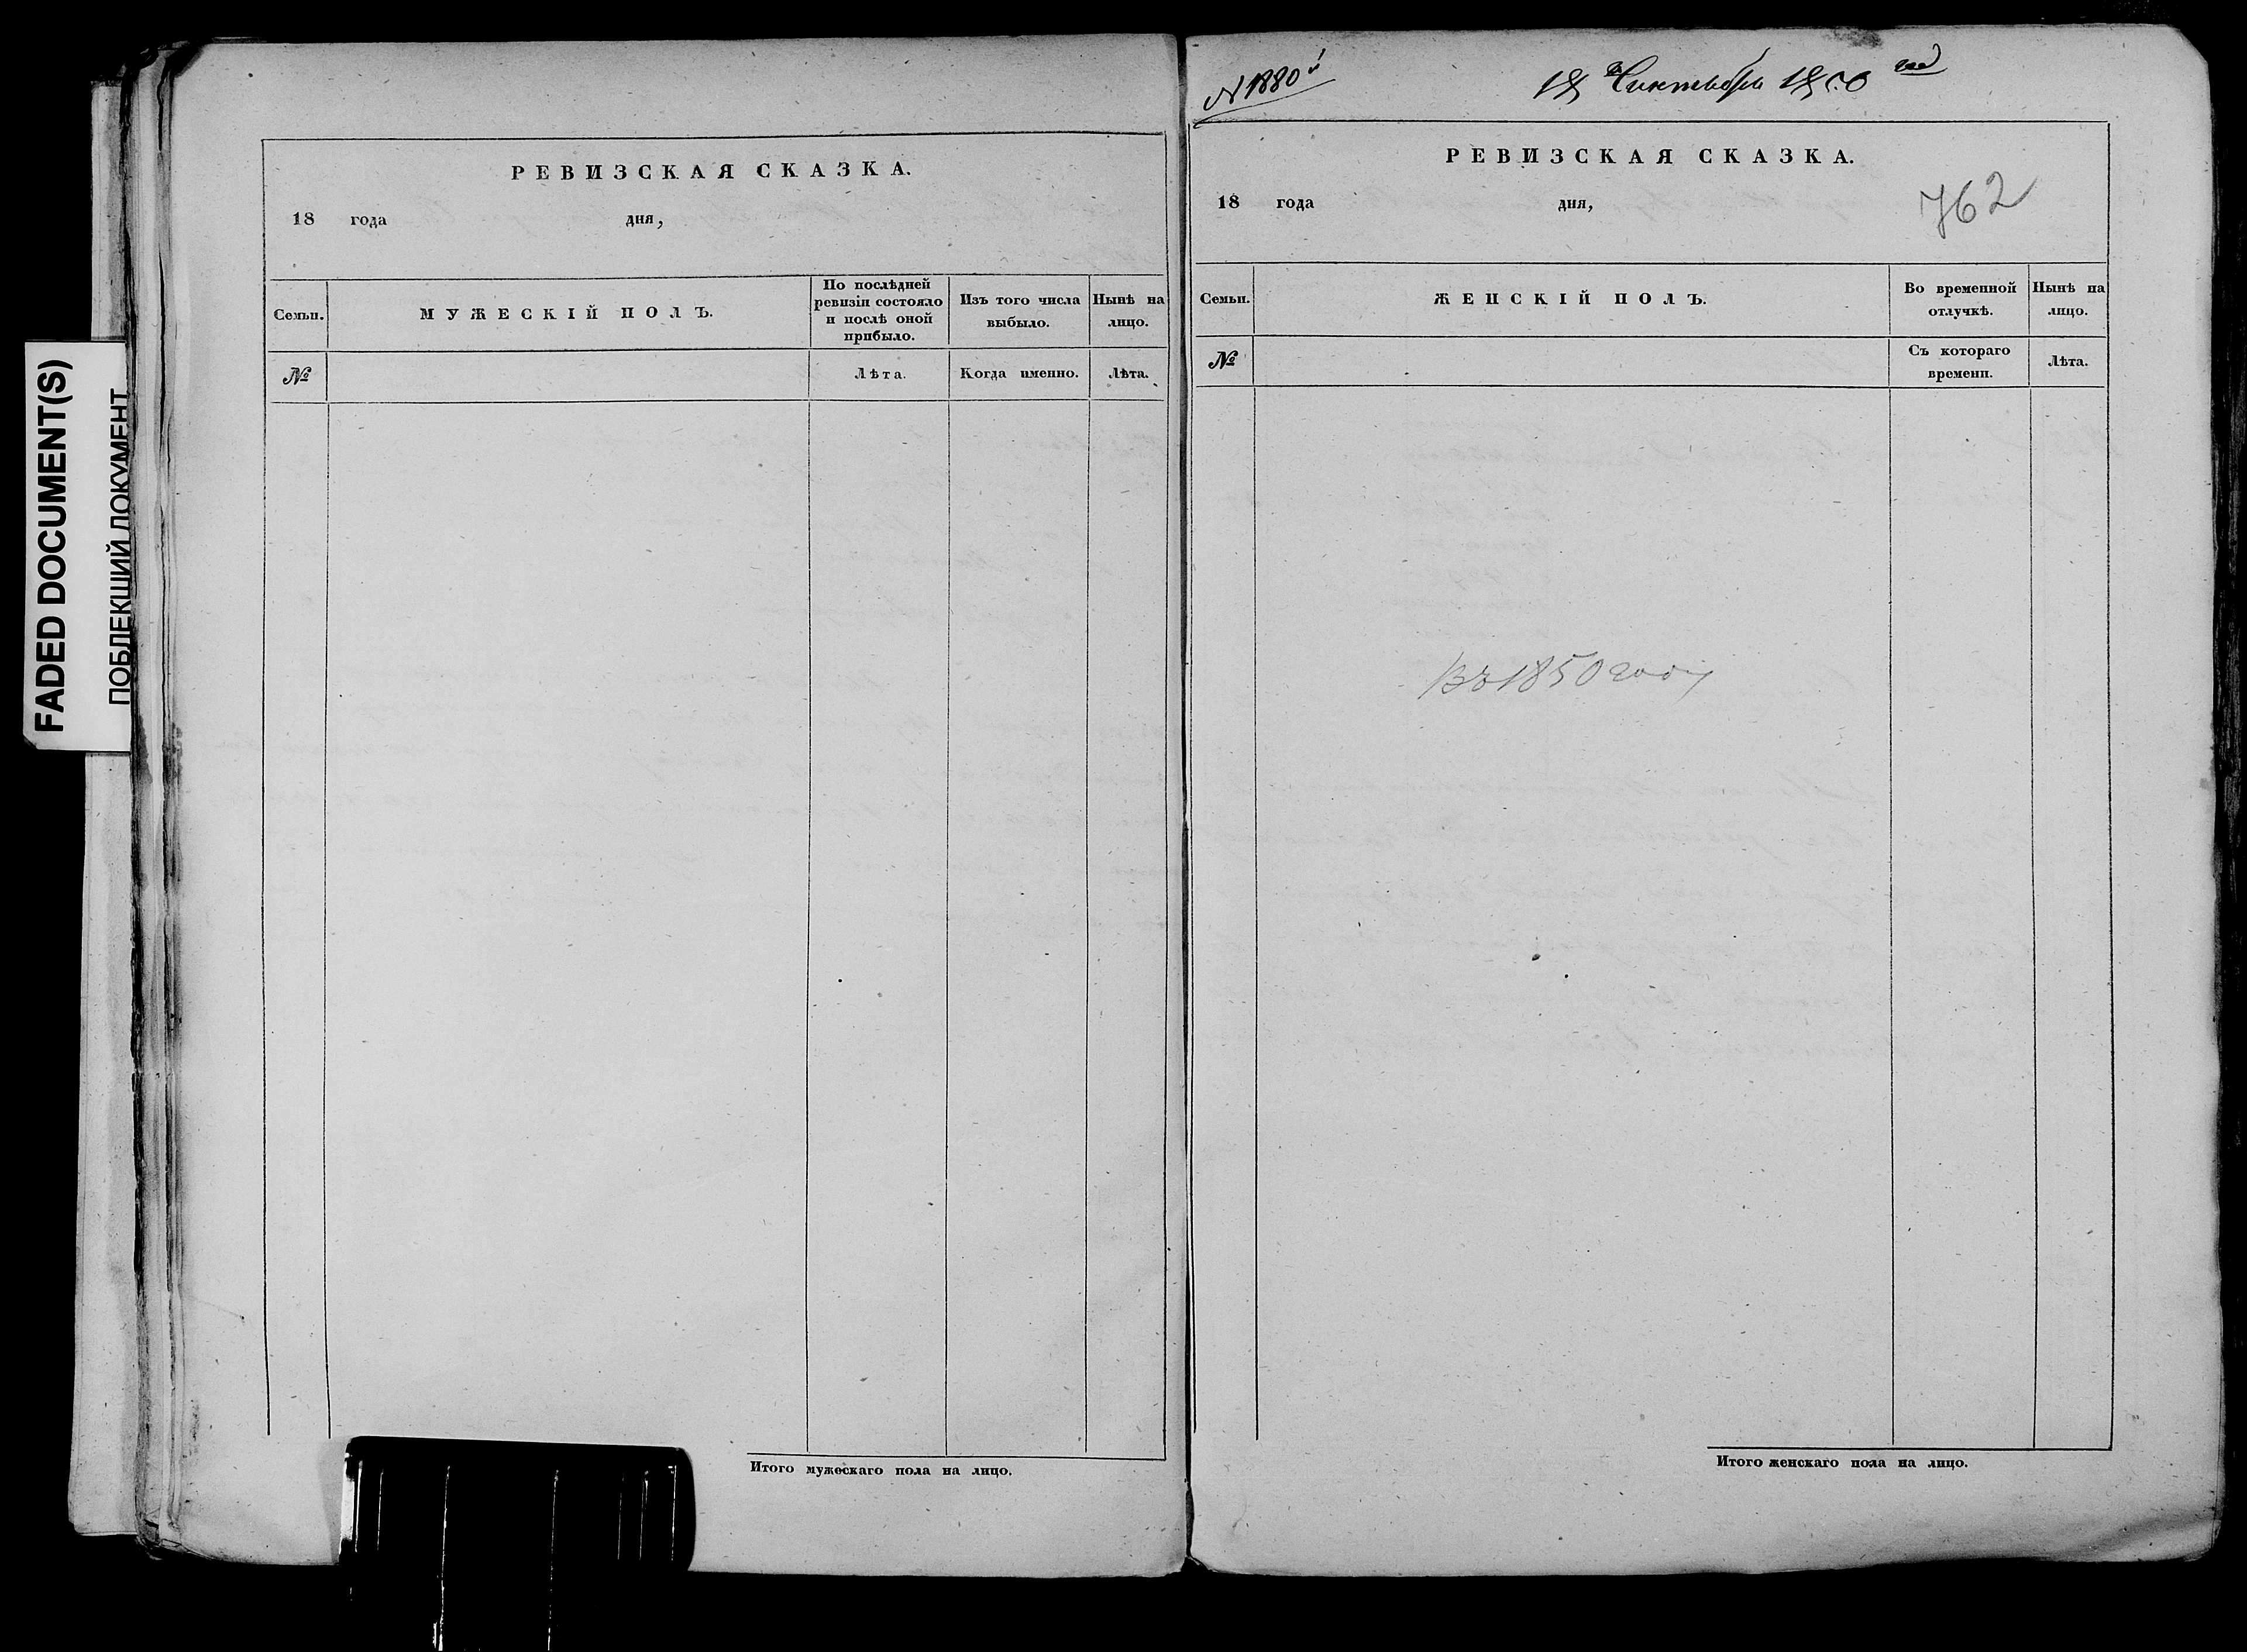 FADED DOCUMENT(S)
ПОБЛЕКЩИЙ ДОКУМЕНТ
РЕВИЗСКАЯ СКАЗКА.
18 года дня,
Семьи. МУЖЕСКІЙ ПОЛЪ. По послѣдней ревизіи состояло и послѣ оной прибыло. Изъ того числа выбыло. Нынѣ на лицо.
№ Лѣта. Когда именно. Лѣта.
Итого мужескаго пола на лицо.
N 1880й
18 Сентября 1850 год
РЕВИЗСКАЯ СКАЗКА.
18 года дня,
762
Семьи. ЖЕНСКІЙ ПОЛЪ. Во временной отлучкѣ. Нынѣ на лицо.
№ Съ котораго времени. Лѣта.
Въ 1850 году
Итого женскаго пола на лицо.